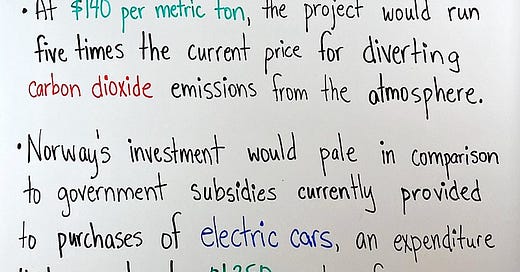 • At $140 per metric ton, the project would run
five times the current price for diverting
carbon dioxide emissions from the atmosphere.
• Norway's investment would pale in comparison
to government subsidies currently provided
to purchases of electric cars, an expenditure